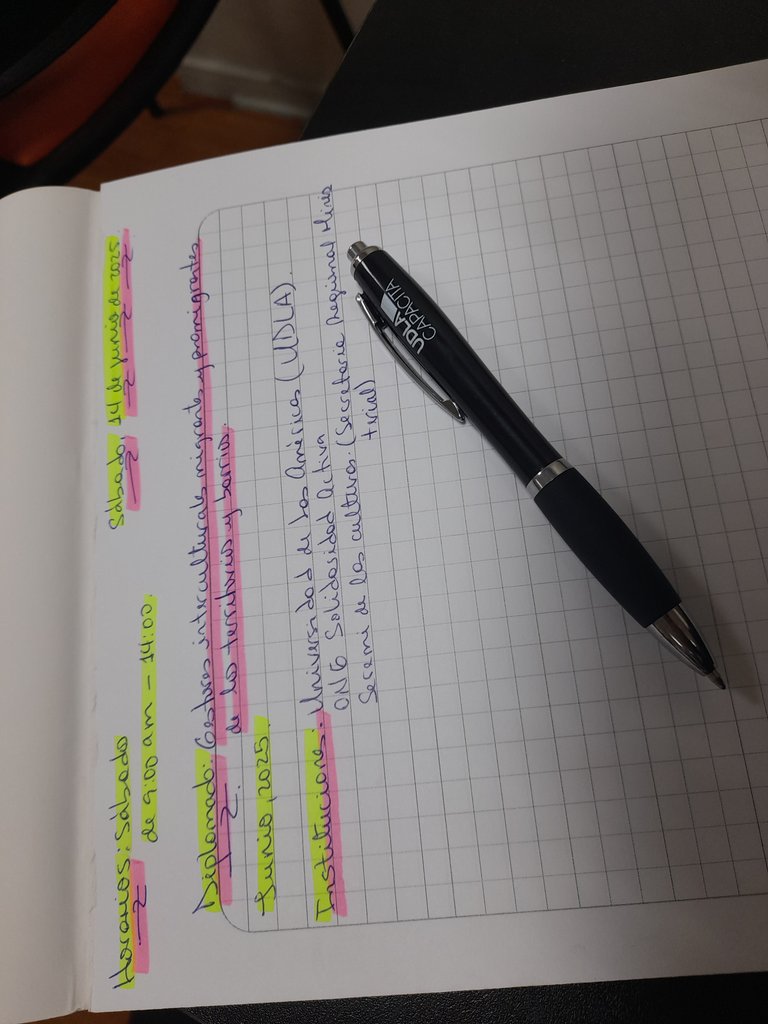 Horarios: Sábado
de 9:00 am - 14:00.
Sábado, 14 de junio de 2025
Diplomado: Gestores interculturales migrantes y promigrantes
de los territorios y barrios.
Junio, 2025.
Instituciones: Universidad de las Américas (UDLA).
ONG Solidaridad Activa
Seremi de las culturas. (Secretaria Regional Minis
trial)
UDLA
CAPACITA